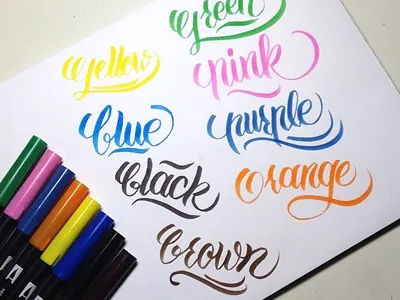 green
yellow
pink
blue
purple
black
orange
brown